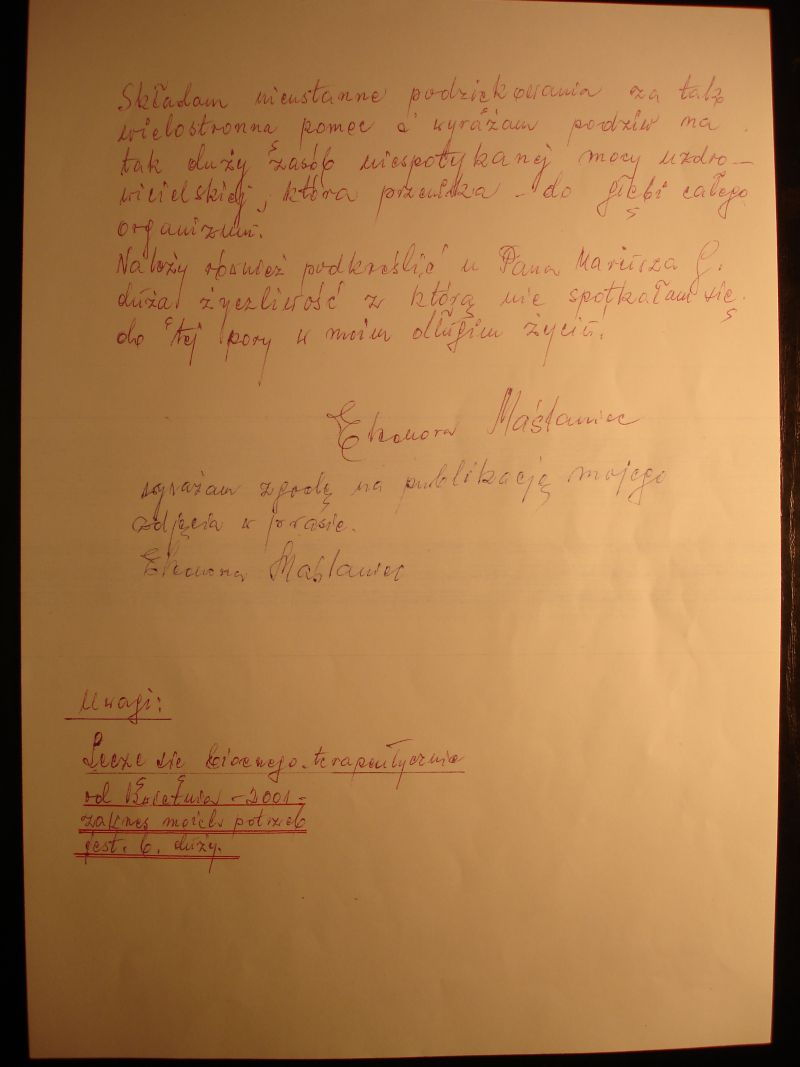 Składam nieustanne podziękowania za tak
wielostronną pomoc i wyrażam podziw na
tak duży zasób niespotykanej mocy uzdro-
wicielskiej, która przenika - do głębi całego
organizmu.
Należy również podkreślić u Pana Mariusza G.
duża życzliwość z którą nie spotkałam się
do tej pory w moim długim życiu.
Eleonora Maślaniec
wyrażam zgodę na publikację mojego
zdjęcia w prasie.
Eleonora Maślaniec
Uwagi:
Leczę się bioenego.terapeutycznie
od Kwietnia - 2001 -
zakres moich potrzeb
jest. b. duży.